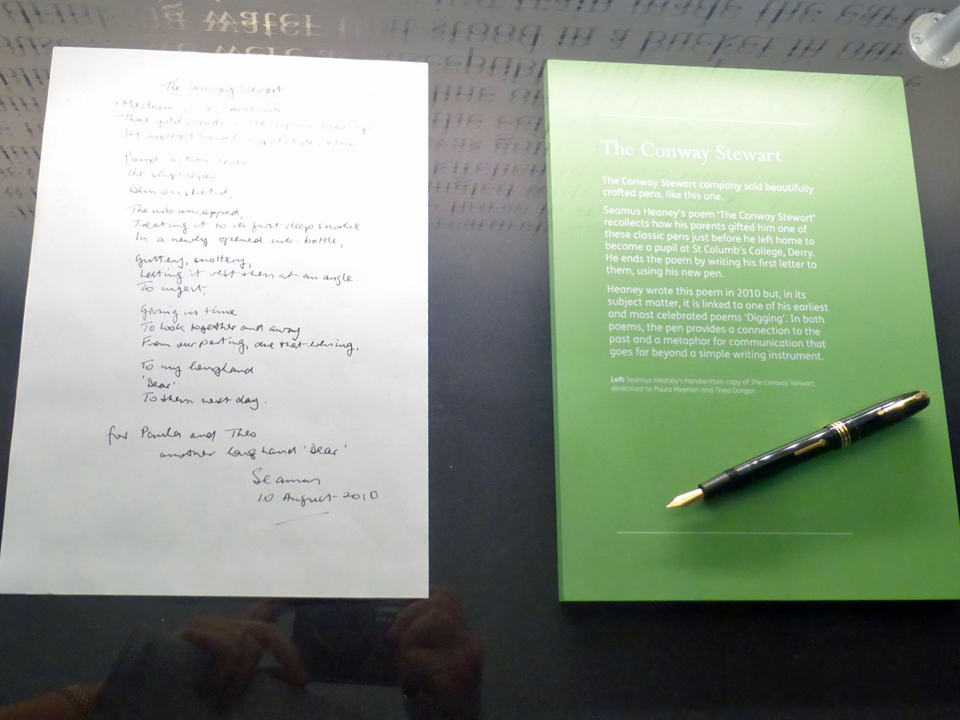 The Conway Stewart
Pump action lever
The shopkeeper
Demonstrated,
The nib uncapped,
Treating it to its first deep snorkel
In a newly opened ink-bottle,
Guttery, snottery,
Letting it rest then at an angle
To ingest,
Giving us time
To look together and away
From our parting, due that evening,
To my longhand
'Dear'
To them next day.
for Paula and Theo
another longhand 'Dear'
Seamus
10 August 2010
The Conway Stewart
The Conway Stewart company sold beautifully
crafted pens, like this one.
Seamus Heaney's poem 'The Conway Stewart'
recollects how his parents gifted him one of
these classic pens just before he left home to
become a pupil at St Columb's College, Derry.
He ends the poem by writing his first letter to
them, using his new pen.
Heaney wrote this poem in 2010 but, in its
subject matter, it is linked to one of his earliest
and most celebrated poems 'Digging'. In both
poems, the pen provides a connection to the
past and a metaphor for communication that
goes far beyond a simple writing instrument.
Left Seamus Heaney's handwritten copy of The Conway Stewart,
dedicated to Paula Meehan and Theo Dorgan
water that stood in a bucket in our